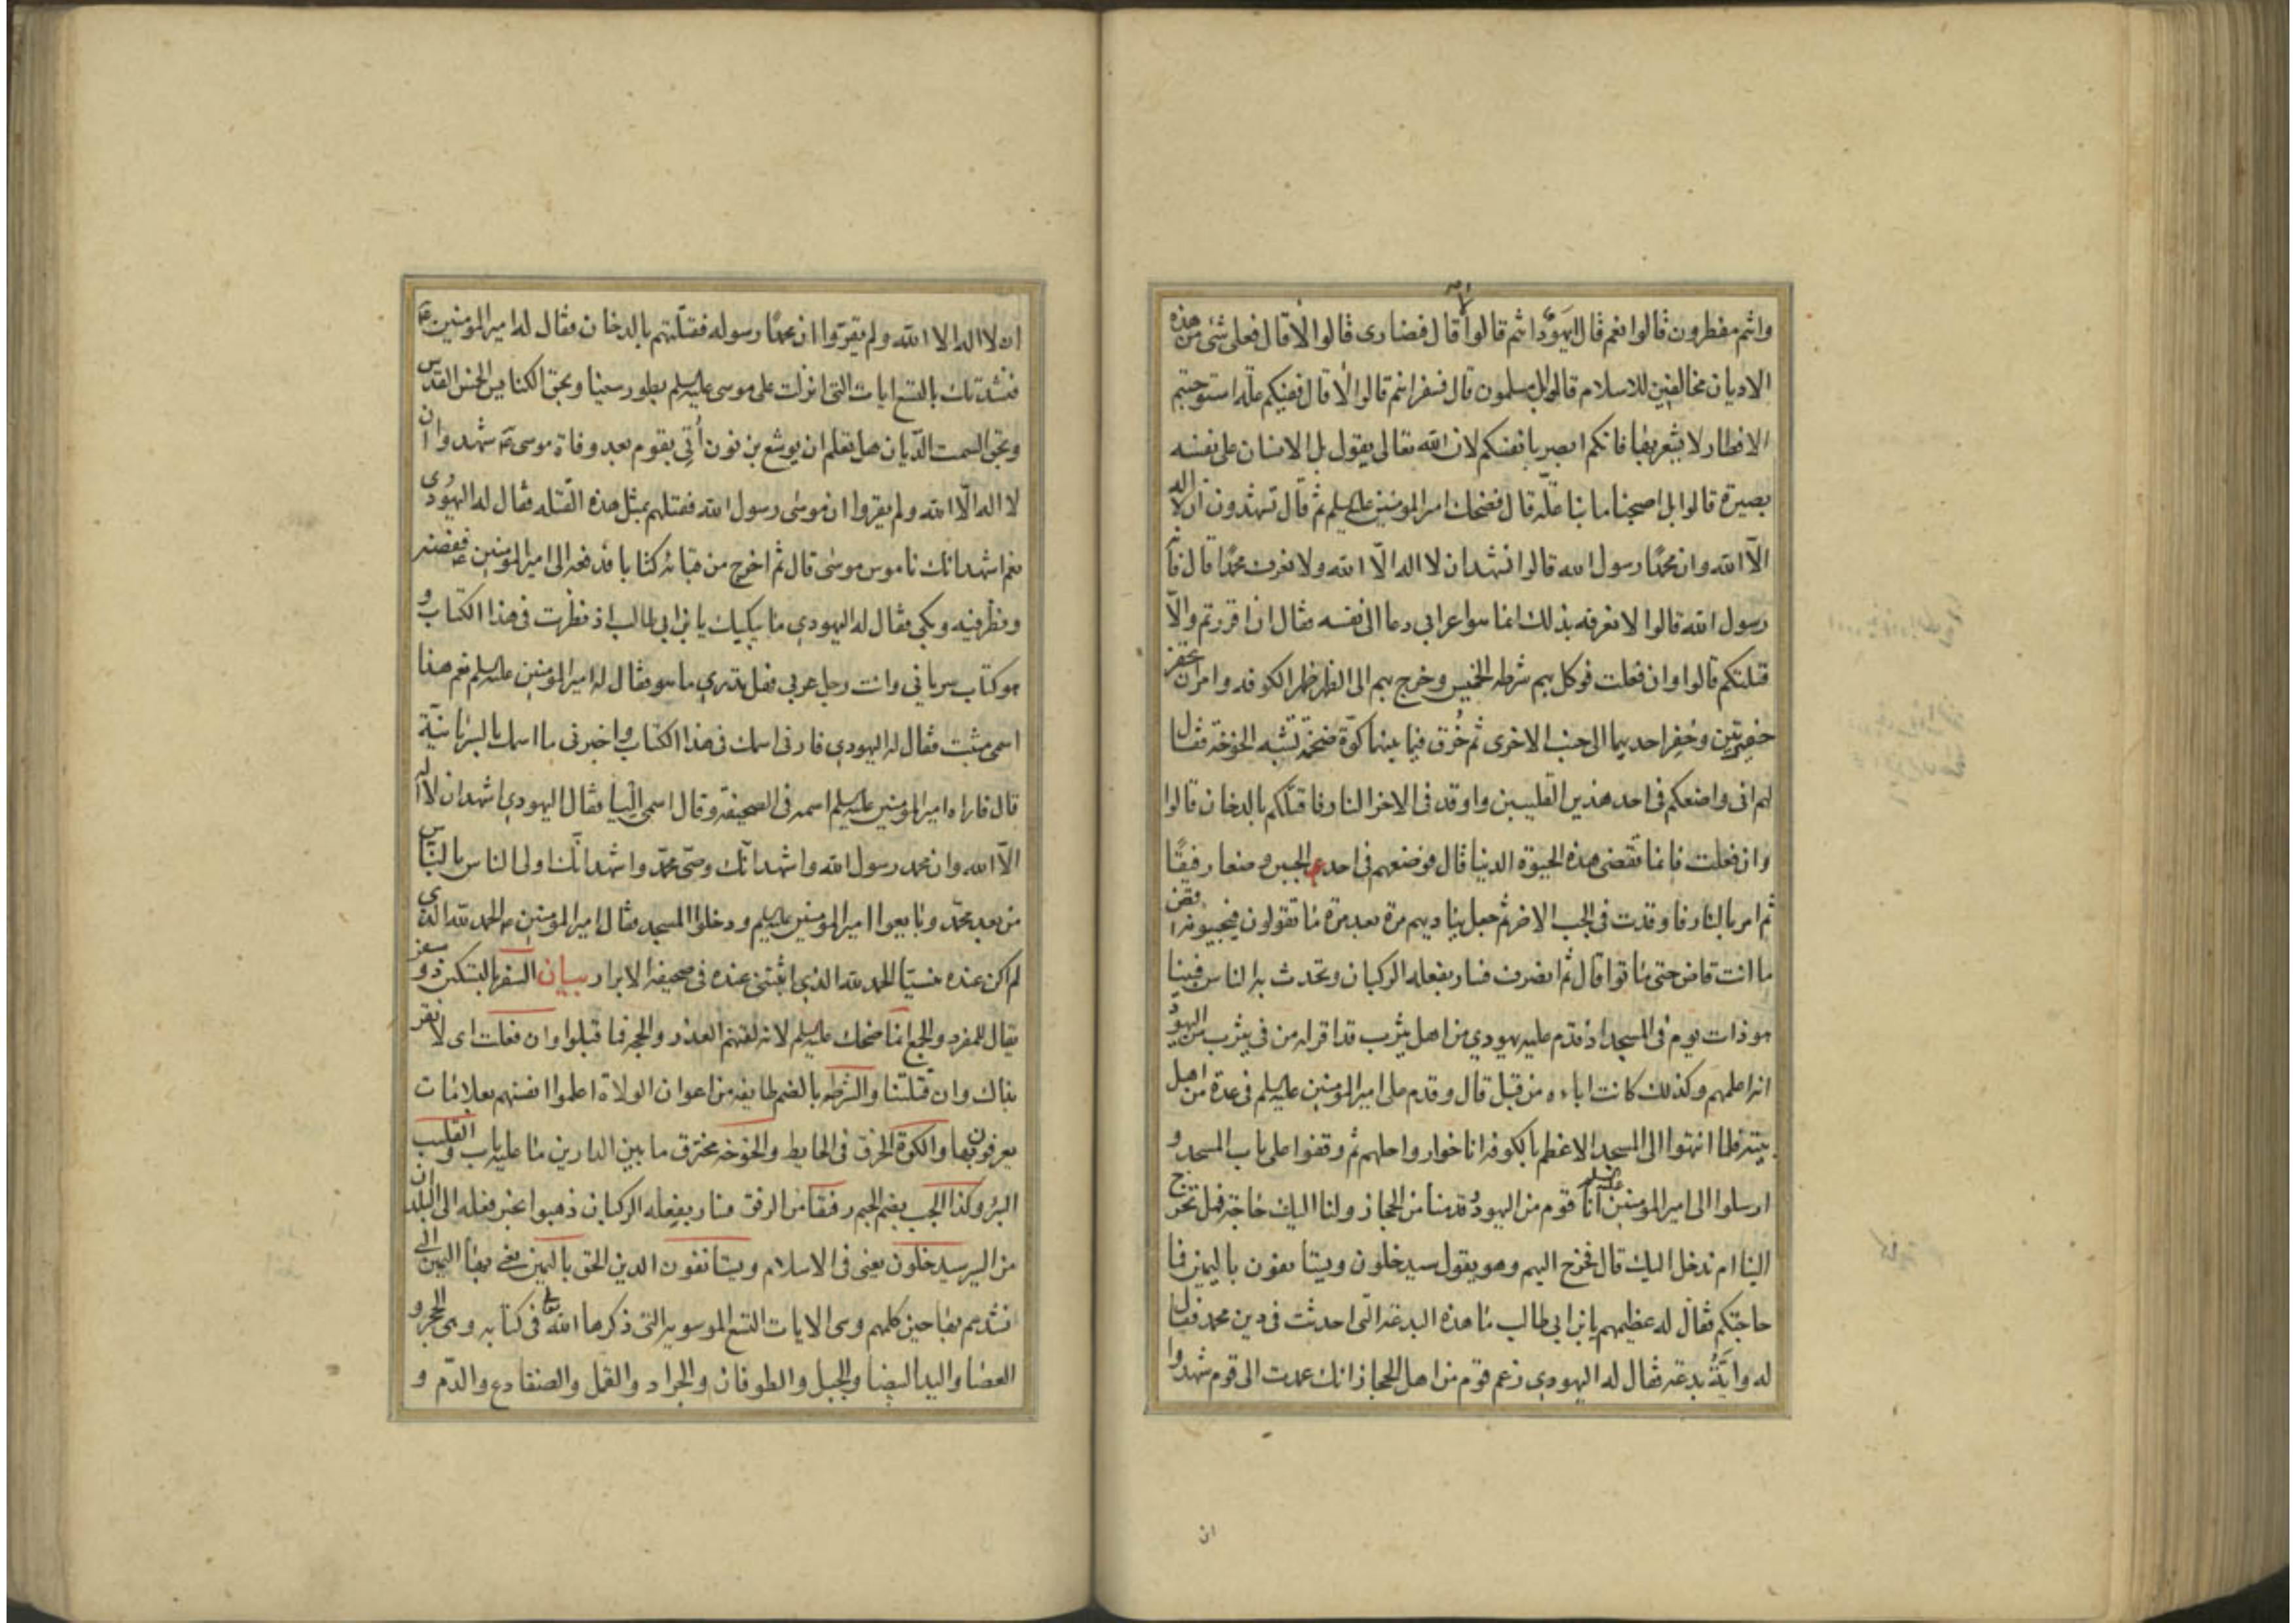 وانتم مفطرون قالوا نعم قال ايهود انتم قالوا لا قال فنصارى قالوا لا قال فعلى شئ من هذه
الاديان مخالفين للاسلام قالوا بل مسلمون قال فسفر انتم قالوا لا قال ففيكم علة استوجبتم
الافطار لا نشعر بها فانكم ابصر بانفسكم لان الله تعالى يقول بل الانسان على نفسه
بصيرة قالوا بل اصبحنا ما بنا علة قال فضحك امير المؤمنين عليه السلم ثم قال تشهدون ان لا اله
الا الله وان محمدا رسول الله قالوا نشهد ان لا اله الا الله ولا نعرف محمدا قال فانه
رسول الله قالوا لا نعرفه بذلك انما هو اعرابي دعا الى نفسه فقال ان اقررتم والا
قتلتكم قالوا وان فعلت فوكل بهم شرطة الخميس وخرج بهم الى الظهر ظهر الكوفه وامر ان تحفر
حفرتين وحفر احديهما الى جنب الاخرى ثم خرق فيما بينهما كوة ضخمة تشبه الخوخة فقال
لهم انى واضعكم فى احد هذين القليبين واوقد فى الاخر النار فاقتلكم بالدخان قالوا
وان فعلت فانما تقضى هذه الحيوة الدنيا قال فوضعهم فى احدى الجبين وضعا رفيقا
ثم امر بالنار فاوقدت فى الجب الاخر ثم جعل يناديهم مرة بعد مرة ما تقولون فيجيبونه اقض
ما انت قاض حتى ماتوا قال ثم انصرف فسار بفعله الركبان وتحدث به الناس فبينا
هو ذات يوم فى المسجد اذ قدم عليه يهودي من اهل يثرب قد اقر له من فى يثرب من اليهود
انه اعلمهم وكذلك كانت اباءه من قبل قال وقدم على امير المؤمنين عليه السلم فى عدة من اهل
بيته فلما انتهوا الى المسجد الاعظم بالكوفه اناخوا رواحلهم ثم وقفوا على باب المسجد و
ارسلوا الى امير المؤمنين عليه السلم انا قوم من اليهود قدمنا من الحجاز ولنا اليك حاجة فهل تخرج
الينا ام ندخل اليك قال فخرج اليهم وهو يقول سيدخلون ويستانفون باليمين فما
حاجتكم فقال له عظيمهم يا بن ابى طالب ما هذه البدعة التى احدثت فى دين محمد فقال
له واية بدعة فقال له اليهودي زعم قوم من اهل الحجاز انك عمدت الى قوم شهدوا
ان
ان لا اله الا الله ولم يقروا ان محمدا رسوله فقتلتهم بالدخان فقال له امير المؤمنين ع
فنشدتك بالتسع ايات التى انزلت على موسى عليه السلم بطور سينا وبحق الكنايس الخمس القدس
وبحق السمت الديان هل تعلم ان يوشع بن نون أتي بقوم بعد وفاة موسى ع شهدوا ان
لا اله الا الله ولم يقروا ان موسى رسول الله فقتلهم بمثل هذه القتله فقال له اليهودي
نعم اشهد انك ناموس موسى قال ثم اخرج من قبائه كتابا فدفعه الى امير المؤمنين ع ففضه
ونظر فيه وبكى فقال له اليهودي ما يبكيك يا بن ابى طالب اذ نظرت فى هذا الكتاب و
هو كتاب سرياني وانت رجل عربى فهل تدري ما هو فقال له امير المؤمنين عليه السلم نعم هذا
اسمى مثبت فقال له اليهودي فارنى اسمك فى هذا الكتاب واخبرنى ما اسمك بالسريانية
قال فاراه امير المؤمنين عليه السلم اسمه فى الصحيفة وقال اسمى اليا فقال اليهودي اشهد ان لا اله
الا الله وان محمد رسول الله واشهد انك وصى محمد واشهد انك اولى الناس بالناس
من بعد محمد وبايعوا امير المؤمنين عليه السلم ودخلوا المسجد فقال امير المؤمنين ع الحمد لله الذى
لم اكن عنده منسيا الحمد لله الذى اثبتنى عنده فى صحيفة الابرار بيان السفر بالتسكين ذو سفر
يقال للمفرد والجمع انما ضحك عليه السلم لانه لقنهم العذر والحجة فما قبلوا وان فعلت اى لا نقر
بذاك وان قتلتنا والشرطه بالضم طايفه من اعوان الولاة اعلموا انفسهم بعلامات
يعرفون بها والكوة الخرق فى الحايط والخوخه مخترق ما بين الدارين ما عليه باب والقليب
البئر وكذا الجب بضم الجيم رفقا من الرفق فسار بفعله الركبان ذهبوا بخبر فعله الى البلدان
من السير سيدخلون يعنى فى الاسلام ويستانفون الدين الحق باليمين يعنى بهذا اليمين التى
انشدهم بها حين كلمهم وهى الايات التسع الموسويه التى ذكرها الله تعالى فى كتابه وهى الحجر و
العصا واليد البيضا والجبل والطوفان والجراد والقمل والضفادع والدم و